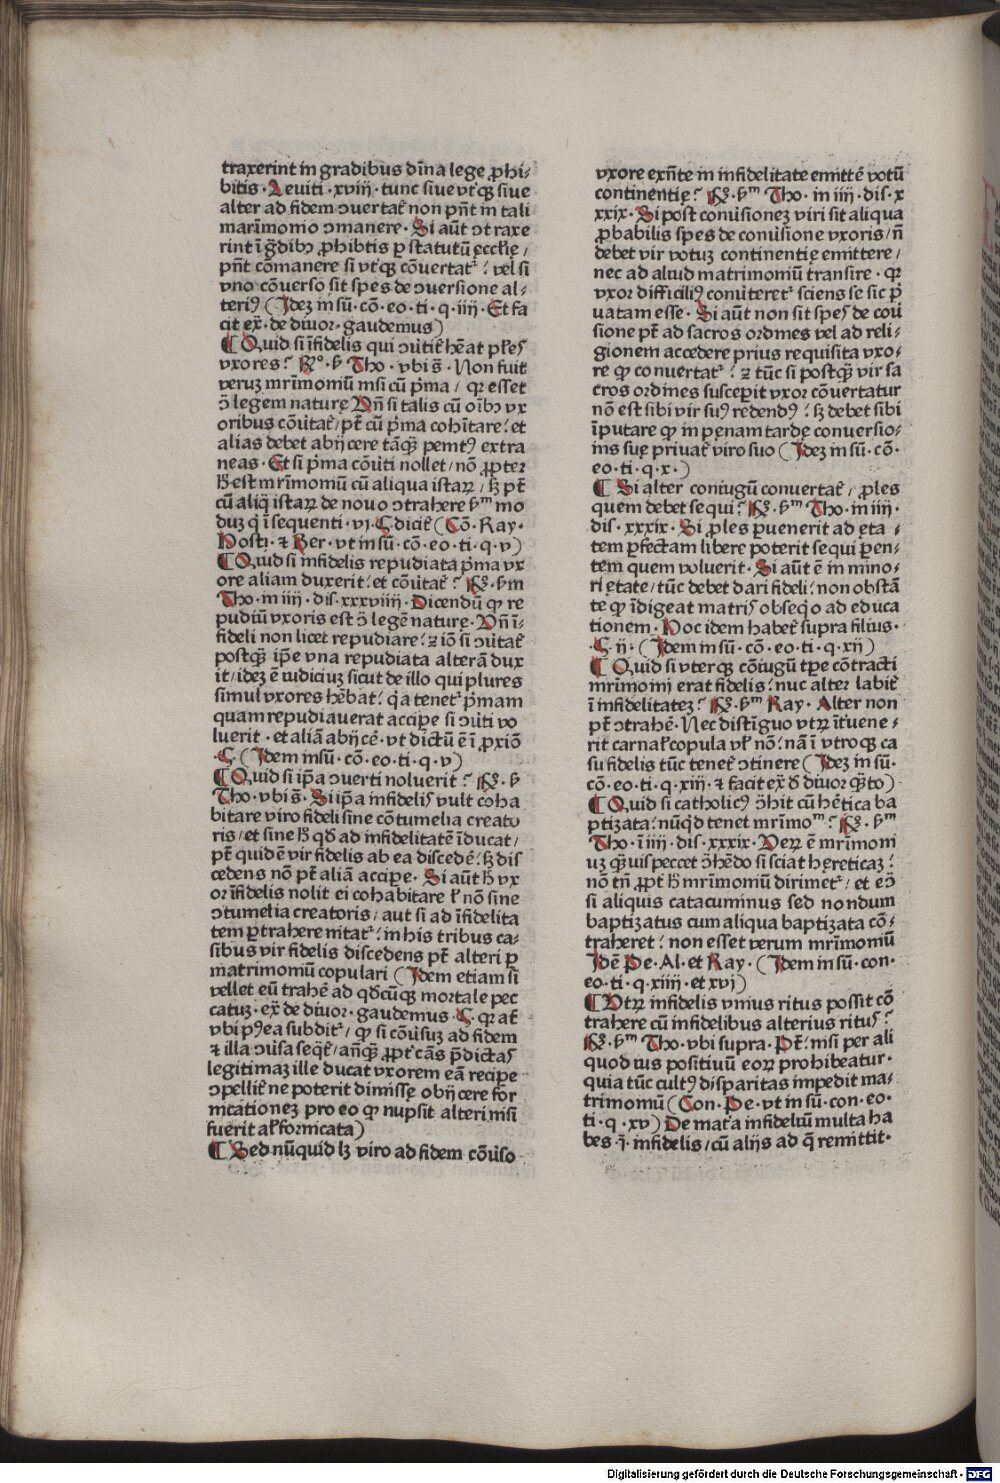 traxerint in gradibus dīna lege ꝓhi⸗
bitis · Leuiti · xviij · tunc siue vtꝙ siue
alter ad fidem ↄuertat᷑ non pn̄t in tali
matrimonio ↄmanere · Si aūt ↄtraxe
rint ī ḡdibꝫ ꝓhibtis ꝑ statutū ęcclīę /
pn̄t cōmanere si vtꝙ cōuertat᷑ ? vel si
vno cōuerso sit spes de ↄuersione al⸗
teriꝰ ( Idez in sū · cō · eo · ti · q · iiij · Et fa
cit ex̄ · de diuor · gaudemus )
¶ Quid si īfidelis qui ↄūtit᷑ hēat pl̄es
vxores ? ℞o · ẜ Tho · vbi s̄ · Non fuit
veruz mr̄imoniū nisi cū pͥma / qꝛ esset
ↄ̄ legem naturę Vn̄ si talis cū oībꝫ vx
oribus cōūtat᷑ / pt̄ cū pͥma cohītare ? et
alias debet abijcere tāꝙ pemtꝰ extra
neas · Et si pͥma cōūti nollet / nō ꝓpter
ħ est mr̄imoniū cū aliqua istaꝝ / sꝫ pt̄
cū aliq̄ istaꝝ de nouo ↄtrahere ẜm mo
duz q̄ ī sequenti · vj · §. dicit᷑ ( Cō · Ray ·
Hosti · ⁊ Ber · vt in sū · cō · eo · ti · q · v )
¶ Quid si infidelis repudiata pͥma vx
ore aliam duxerit ? et cōūtat᷑ ? ℞o · ẜm
Tho · in iiij · dis · xxxviiij · Dicendū ꝙ re
pudiū vxoris est ↄ̄ legē naturę · Vn̄ ī⸗
fideli non licet repudiare ? ⁊ iō si ↄūtat᷑
postꝙ ip̄e vna repudiata alterā dux
it / idez ē iudiciuz sicut de illo qui plures
simul vxores hēbat ? q̄a tenet᷑ pͥmam
quam repudiauerat accipe si ↄūti vo
luerit · et aliā abijcē · vt dictū ē ī ꝓxiō
· §. ( Idem in sū · cō · eo · ti · q · v )
¶ Quid si ip̄a ↄuerti noluerit ? ℞o · ẜ
Tho · vbi s̄ · Si ip̄a infidelis vult coha
bitare viro fideli sine cōtumelia creato
ris / et sine ħ qđ ad infidelitatē īducat /
pt̄ quidē vir fidelis ab ea discedē ? sꝫ dis
cedens nō pt̄ aliā accipe · Si aūt ħ vx
or īfidelis nolit ei cohabitare ł nō sine
ↄtumelia creatoris / aut si ad īfidelita
tem ꝑtrahere nitat᷑ ? in his tribus ca⸗
sibus vir fidelis discedens pt̄ alteri ꝑ
matrimoniū copulari ( Idem etiam si
vellet eū trahē ad qđcūꝙ mortale pec
catuz · ex̄ · de diuor · gaudemus · §. qꝛ at᷑
vbi pꝰ ea subdit᷑ / ꝙ si cōūsuz ad fidem
⁊ illa ↄūsa seq̄t᷑ / an̄ꝙ ꝓpt᷑ cās p̄dictas
legitimaz ille ducat vxorem eā recipe
ↄpellit᷑ ne poterit dimissę obijcere for
nicationez pro eo ꝙ nupsit alteri nisi
fuerit ał fornicata )
¶ Sed nūquid lꝫ viro ad fidem cōūso
vxore exn̄te in infidelitate emittē votū
continentię ? ℞o · ẜm Tho · in iiij · dis · x
xxix · Si post conūsionez viri sit aliqua
ꝓbabilis spes de conūsione vxoris / n̄
debet vir votuz continentię emittere /
nec ad aliud matrimoniū transire · qꝛ
vxor difficiliꝰ conūteret᷑ sciens se sic pͥ
uatam esse · Si aūt non sit spes de cōū
sione pt̄ ad sacros ordines vel ad reli⸗
gionem accedere prius requisita vxo⸗
re ꝙ conuertat᷑ ? ⁊ tūc si postꝙ vir sa
cros ordines susceperit vxor cōuertatur
nō est sibi vir suꝰ redendꝰ ? sꝫ debet sibi
īputare ꝙ in pęnam tardę conuersio⸗
nis suę priuat᷑ viro suo ( Idez in sū · cō ·
eo · ti · q · x · )
¶ Si alter coniugū conuertat᷑ / ꝓles
quem debet sequi ? ℞o · ẜm Tho · in iiij ·
dis · xxxix · Si ꝓles ꝑuenerit ad ęta ⸗
tem ꝑfectam libere poterit sequi ꝑen⸗
tem quem voluerit · Si aūt ē in mino⸗
ri ętate / tūc debet dari fideli ? non obstā
te ꝙ īdigeat matris obseq̄o ad educa
tionem · Hoc idem habet᷑ supra filius ·
· §. ij · ( Idem in sū · cō · eo · ti · q · xij )
¶ Quid si vterꝙ cōiugū tꝑe cōtracti
mr̄imonij erat fidelis ? nuc alter labit᷑
ī infidelitatez ? ℞o · ẜm Ray · Alter non
pt̄ ↄtrahē · Nec distīguo vtꝝ īt᷑uene⸗
rit carnał copula vł nō ? nā ī vtroꝙ ca
su fidelis tūc tenet᷑ ↄtinere ( Idez in sū ·
cō · eo · ti · q · xiij · ⁊ facit ex̄ · đ diuor q̄to )
¶ Quid si catholicꝰ ↄ̄hit cū hētica ba
ptizata ? nūqͥd tenet mr̄imom ? ℞o · ẜm
Tho · ī iiij · dis · xxxix · Veꝝ ē mr̄imoni
uz ꝙuis peccet ↄ̄hēdo si sciat hęreticaz ?
nō tn̄ ꝓpt᷑ ħ mr̄imoniū dirimet᷑ / et eↄ̄
si aliquis catacuminus sed nondum
baptizatus cum aliqua baptizata cō⸗
traheret ? non esset verum mr̄imoniū
Idē Pe · Al · et Ray · ( Idem in sū · con ·
eo · ti · q · xiiij · et xvj )
¶ Vtꝝ infidelis vnius ritus possit cō
trahere cū infidelibus alterius ritus ?
℞o · ẜm · Tho · vbi supra · Pt̄ ? nisi per ali
quod ius positiuū eoꝝ prohibeatur ·
quia tūc cultꝰ disparitas impedit ma⸗
trimoniū ( Con · Pe · vt in sū · con · eo ·
ti · q · xv ) De mat̄a infideliū multa ha
bes · q̄ · infidelis / cū alijs ad q̄ remittit ·
Digitalisierung gefördert durch die Deutsche Forschungsgemeinschaft - DFG